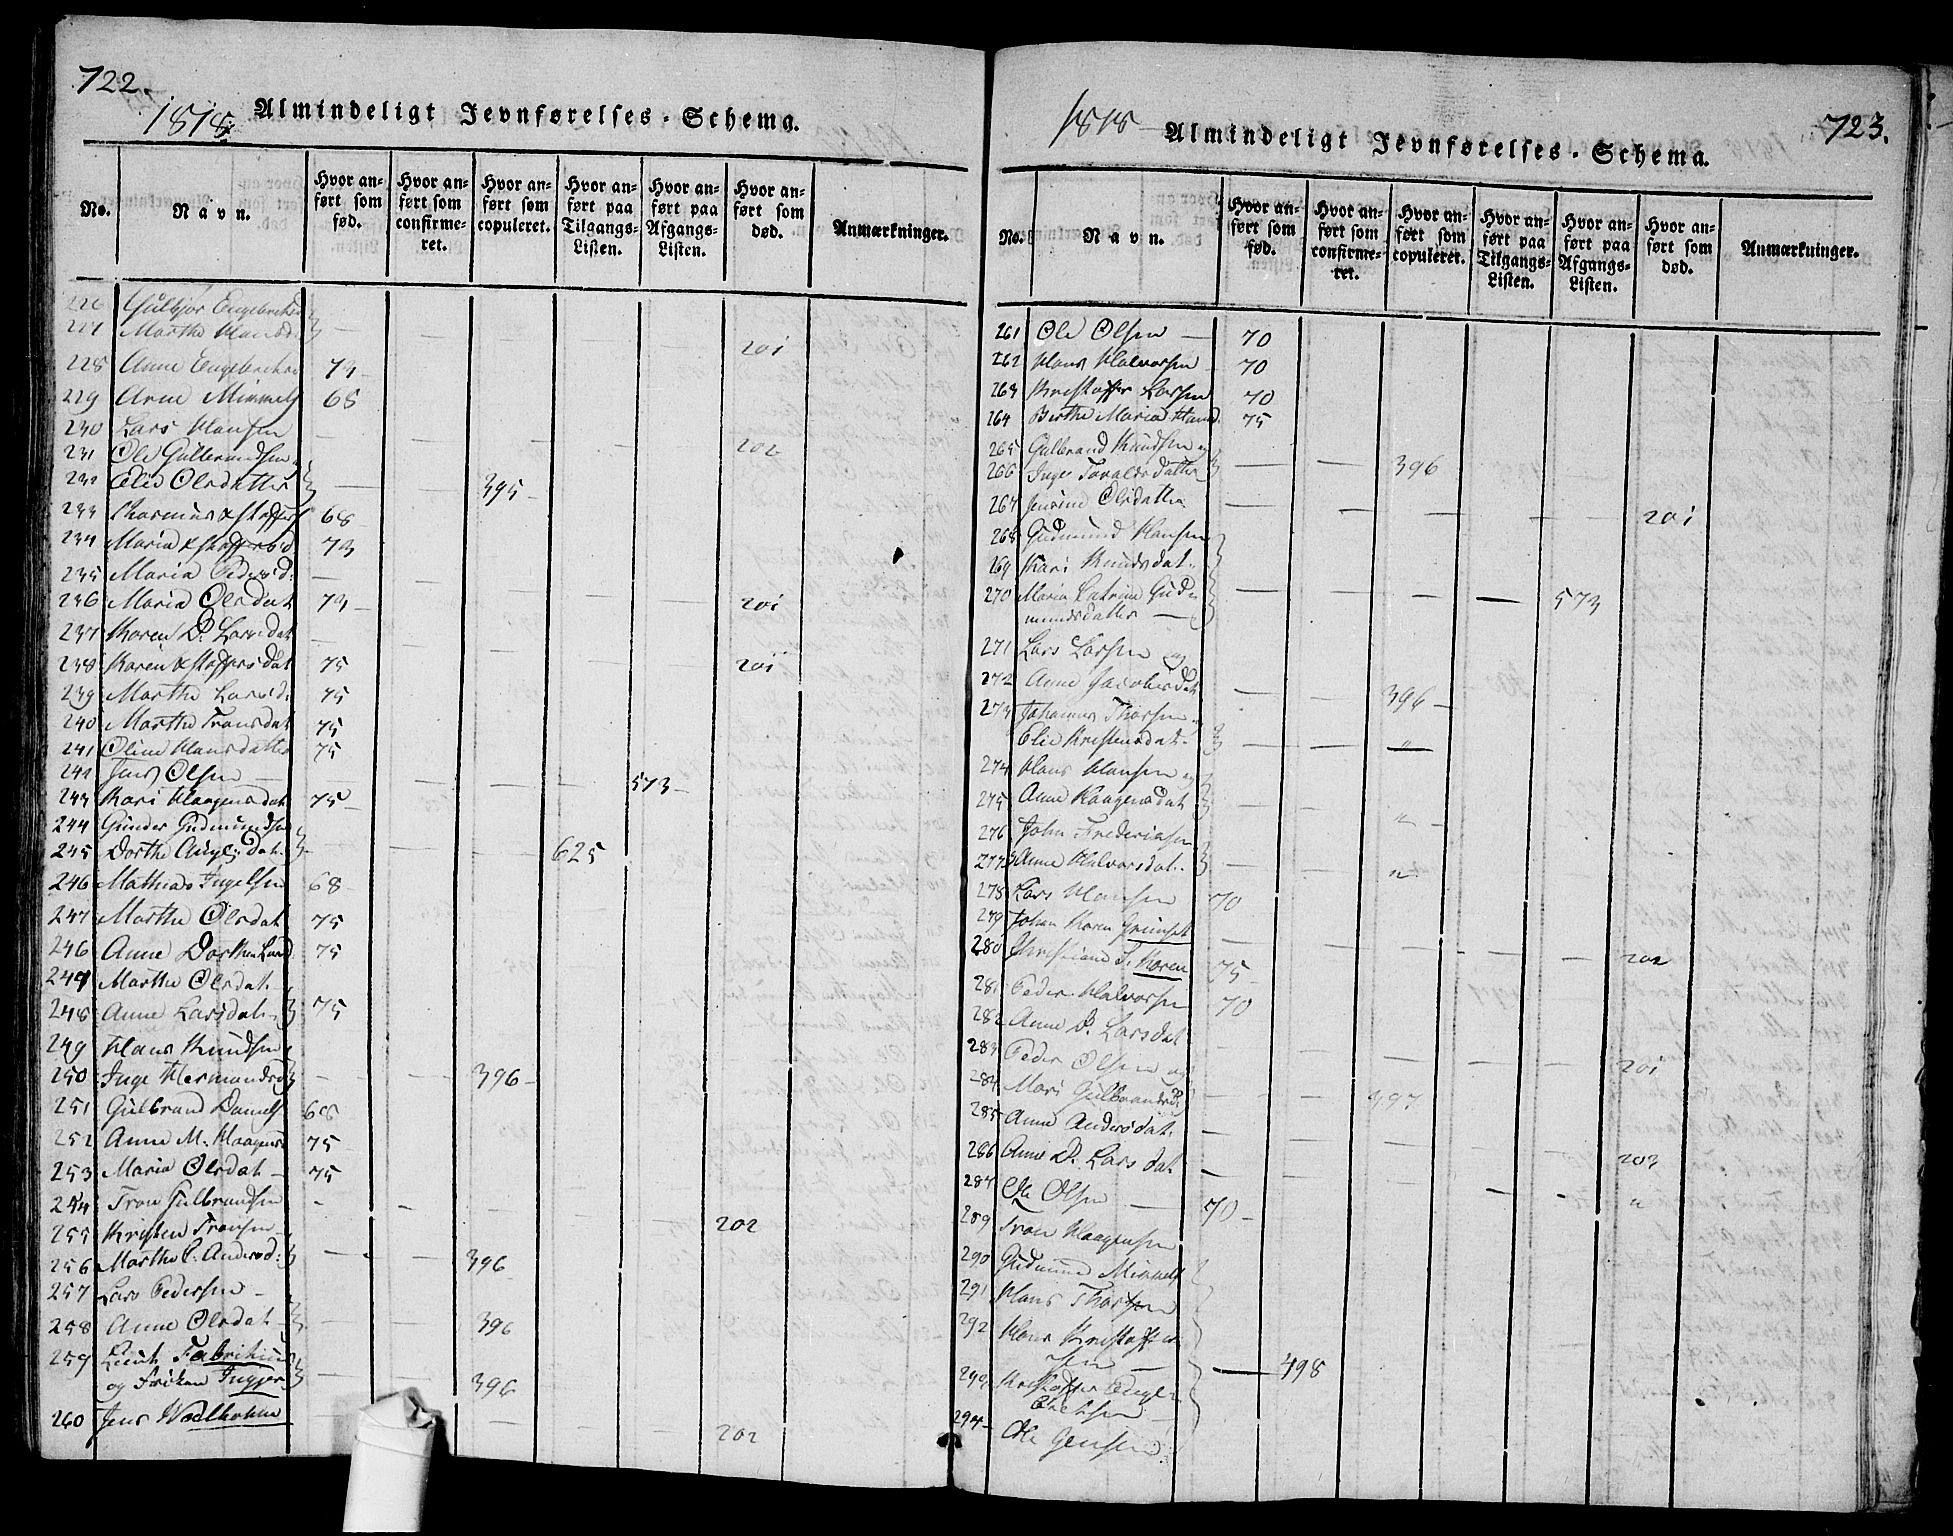 722.
1818. Almindeligt Jevnførelses-Schema.
No. Navn. Hvor anført som fød. Hvor anført som confirmeret. Hvor anført som copuleret. Hvor anført paa Tilgangs-Listen. Hvor anført paa Afgangs-Listen. Hvor anført som død. Anmærkninger.
226 Gulbjør
227 Marthe Hansd 201
228 Anne 73
229 Arne Mimmels 68
230 Lars Hansen 202
231 Ole Gulbrandsen
232 Elie Olsdatter 395
233 68
234 Maria 73
235 Maria Pedersd:
236 Maria Olsdat 73 201
237 Karen D. Larsdat
238 Karen 75 201
239 Marthe Larsd. 75
240 Marthe Tronsdat 75
241 Oline Hansdatter 75
242 Jens Olsen 573
243 Kari Haagensdat 75
244 Gunder Gudmundsen
245 Dorthe dat. 625
246 Mathias Ingelsen 68
247 Marthe Olsdat 75
246 Anne Dorthea 75
247 Marthe Olsdat.
248 Anne Larsdat. 75
249 Hans Knudsen
250 Inge Hermandsd 396
251 Gulbrand Daniels 68
252 Anne M. Haagens 75
253 Maria Olsdat 75
254 Tron Gulbrandsen 202
255 Kristen Tronsen
256 Marthe C. Andersd: 396
257 Lars Pedersen
258 Anne Olsdat 396
259 Lieut. Fabritius
og Frøken 396
260 Jens 202
1818 Almindeligt Jevnførelses-Schema. 723.
No. Navn. Hvor anført som fød. Hvor anført som confirmeret. Hvor anført som copuleret. Hvor anført paa Tilgangs-Listen. Hvor anført paa Afgangs-Listen. Hvor anført som død. Anmærkninger.
261 Ole Olsen 70
262 Hans Halvorsen 70
263 Kristoffer Larsen 70
264 Berthe Maria Hansd. 75
265 Gulbrand Knudsen og
266 Inger datter 396
267 Olsdatter 201
268 Gudmund Hansen
269 Kari Knudsdat.
270 Maria Catrine Gud=
mundsdatter 573
271 Lars Larsen og
272 Anne Jacobsdat 396
273 Johannes Thorsen
Elie Kristensdat. "
274 Hans Hansen og
275 Anne Haagensdat "
276 John Frederiksen
277 Anne Halvorsdat. "
278 Lars Hansen 70
279 Johan Koren 202
280 Christiane J. Koren 75
281 Peder Halvorsen 70
282 Anne D. Larsdat 201
283 Peder Olsen og
284 Mari Gulbrandsd. 397
285 Anne Andersdat.
286 Anne D. Larsdat 203
287 Ole Olsen 70 "
289 Tron Haagensen
290 Gudmund Mimmels
291 Hans Thorsen
292 Hans Kristoffer
sen 498
293 Kristoffer Engel=
brektsen
294 Ole Jensen